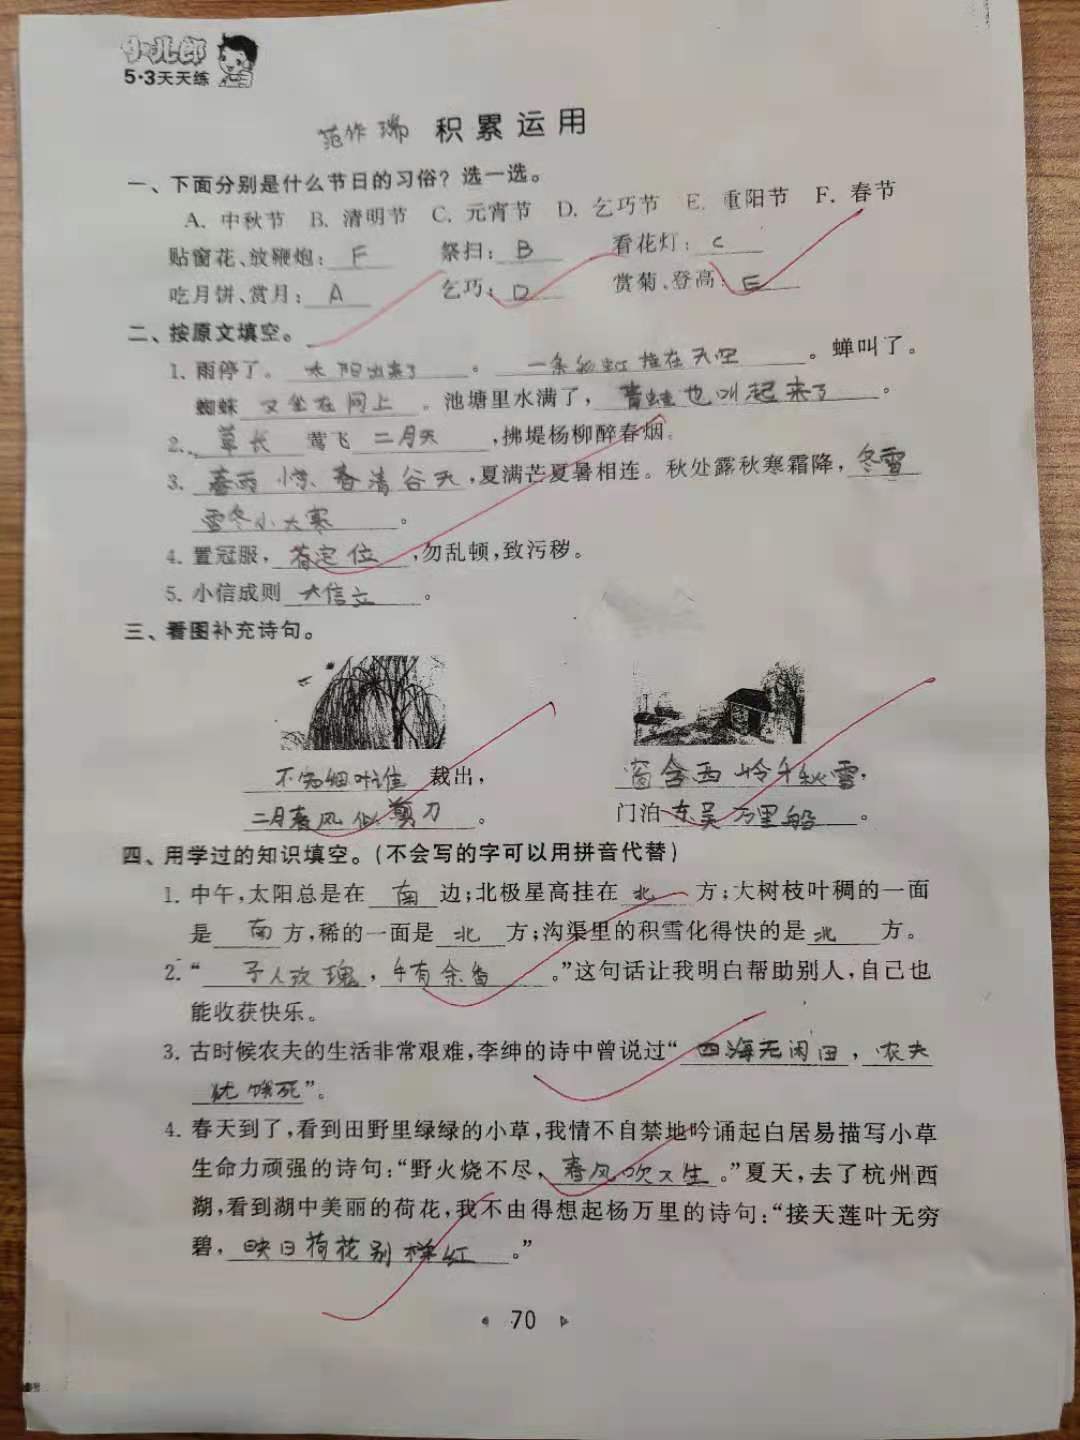 小儿郎
5·3天天练
范作瑞 积累运用
一、下面分别是什么节日的习俗？选一选。
A. 中秋节 B. 清明节 C. 元宵节 D. 乞巧节 E. 重阳节 F. 春节
贴窗花、放鞭炮：F 祭扫：B 看花灯：C
吃月饼、赏月：A 乞巧：D 赏菊、登高：E
二、按原文填空。
1. 雨停了。太阳出来了。一条彩虹挂在天空。蝉叫了。
蜘蛛又坐在网上。池塘里水满了，青蛙也叫起来了。
2. 草长莺飞二月天，拂堤杨柳醉春烟。
3. 春雨惊春清谷天，夏满芒夏暑相连。秋处露秋寒霜降，冬雪
雪冬小大寒。
4. 置冠服，有定位，勿乱顿，致污秽。
5. 小信成则大信立。
三、看图补充诗句。
不知细叶谁裁出， 窗含西岭千秋雪，
二月春风似剪刀。 门泊东吴万里船。
四、用学过的知识填空。（不会写的字可以用拼音代替）
1. 中午，太阳总是在南边；北极星高挂在北方；大树枝叶稠的一面
是南方，稀的一面是北方；沟渠里的积雪化得快的是北方。
2. “予人玫瑰，手有余香。”这句话让我明白帮助别人，自己也
能收获快乐。
3. 古时候农夫的生活非常艰难，李绅的诗中曾说过“四海无闲田，农夫
犹饿死”。
4. 春天到了，看到田野里绿绿的小草，我情不自禁地吟诵起白居易描写小草
生命力顽强的诗句：“野火烧不尽，春风吹又生。”夏天，去了杭州西
湖，看到湖中美丽的荷花，我不由得想起杨万里的诗句：“接天莲叶无穷
碧，映日荷花别样红。”
70